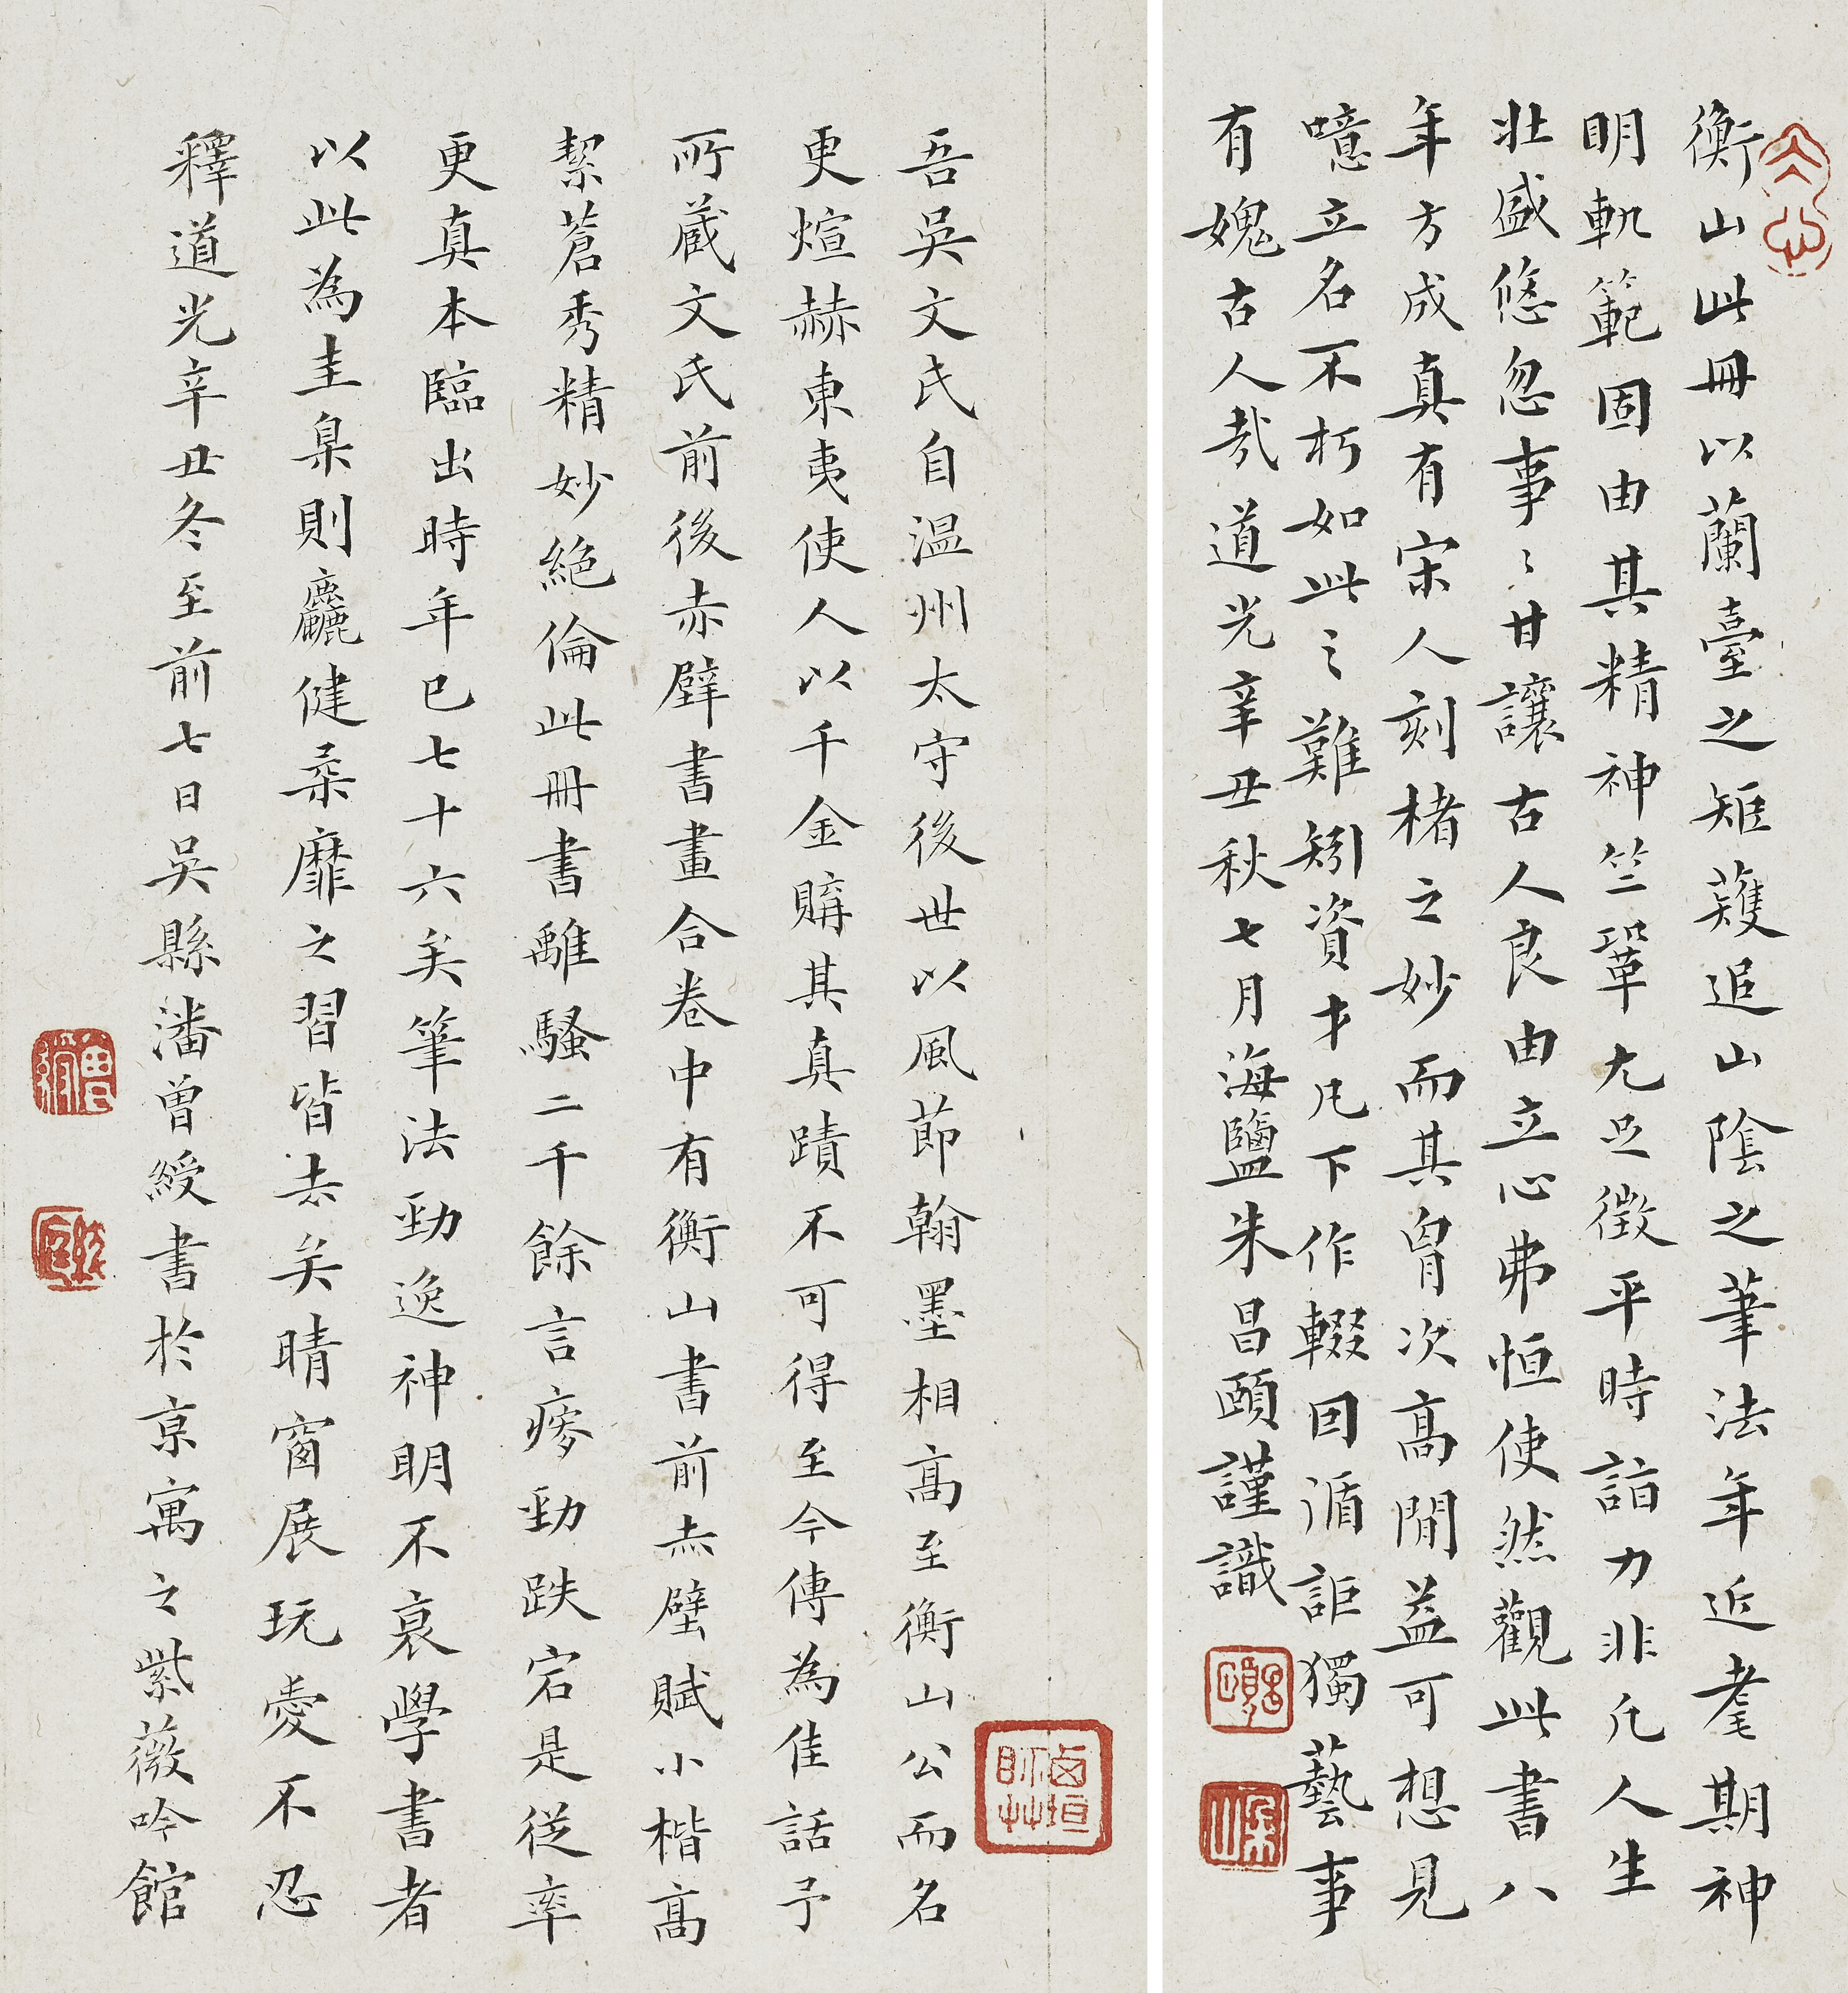 衡山此冊以蘭臺之矩蒦追山陰之筆法年近耄期神
明軌範固由其精神竺鞏尤足徵平時詣力非凡人生
壯盛悠忽事〻甘讓古人良由立心弗恒使然觀此書八
年方成真有宋人刻楮之妙而其胷次高閒益可想見
噫立名不朽如此之難矧資才凡下作輟因循詎獨藝事
有媿古人哉道光辛丑秋七月海鹽朱昌頤謹識
吾吳文氏自温州太守後世以風節翰墨相高至衡山公而名
更煊赫東夷使人以千金購其真蹟不可得至今傳為佳話予
所藏文氏前後赤壁書畫合卷中有衡山書前赤壁賦小楷高
絜蒼秀精妙絶倫此冊書離騷二千餘言瘮勁跌宕是從率
更真本臨出時年已七十六矣筆法勁逸神明不衰學書者
以此為圭臬則麤健柔靡之習皆去矣晴窗展玩愛不忍
釋道光辛丑冬至前七日吳縣潘曾綬書於京寓之紫薇吟館